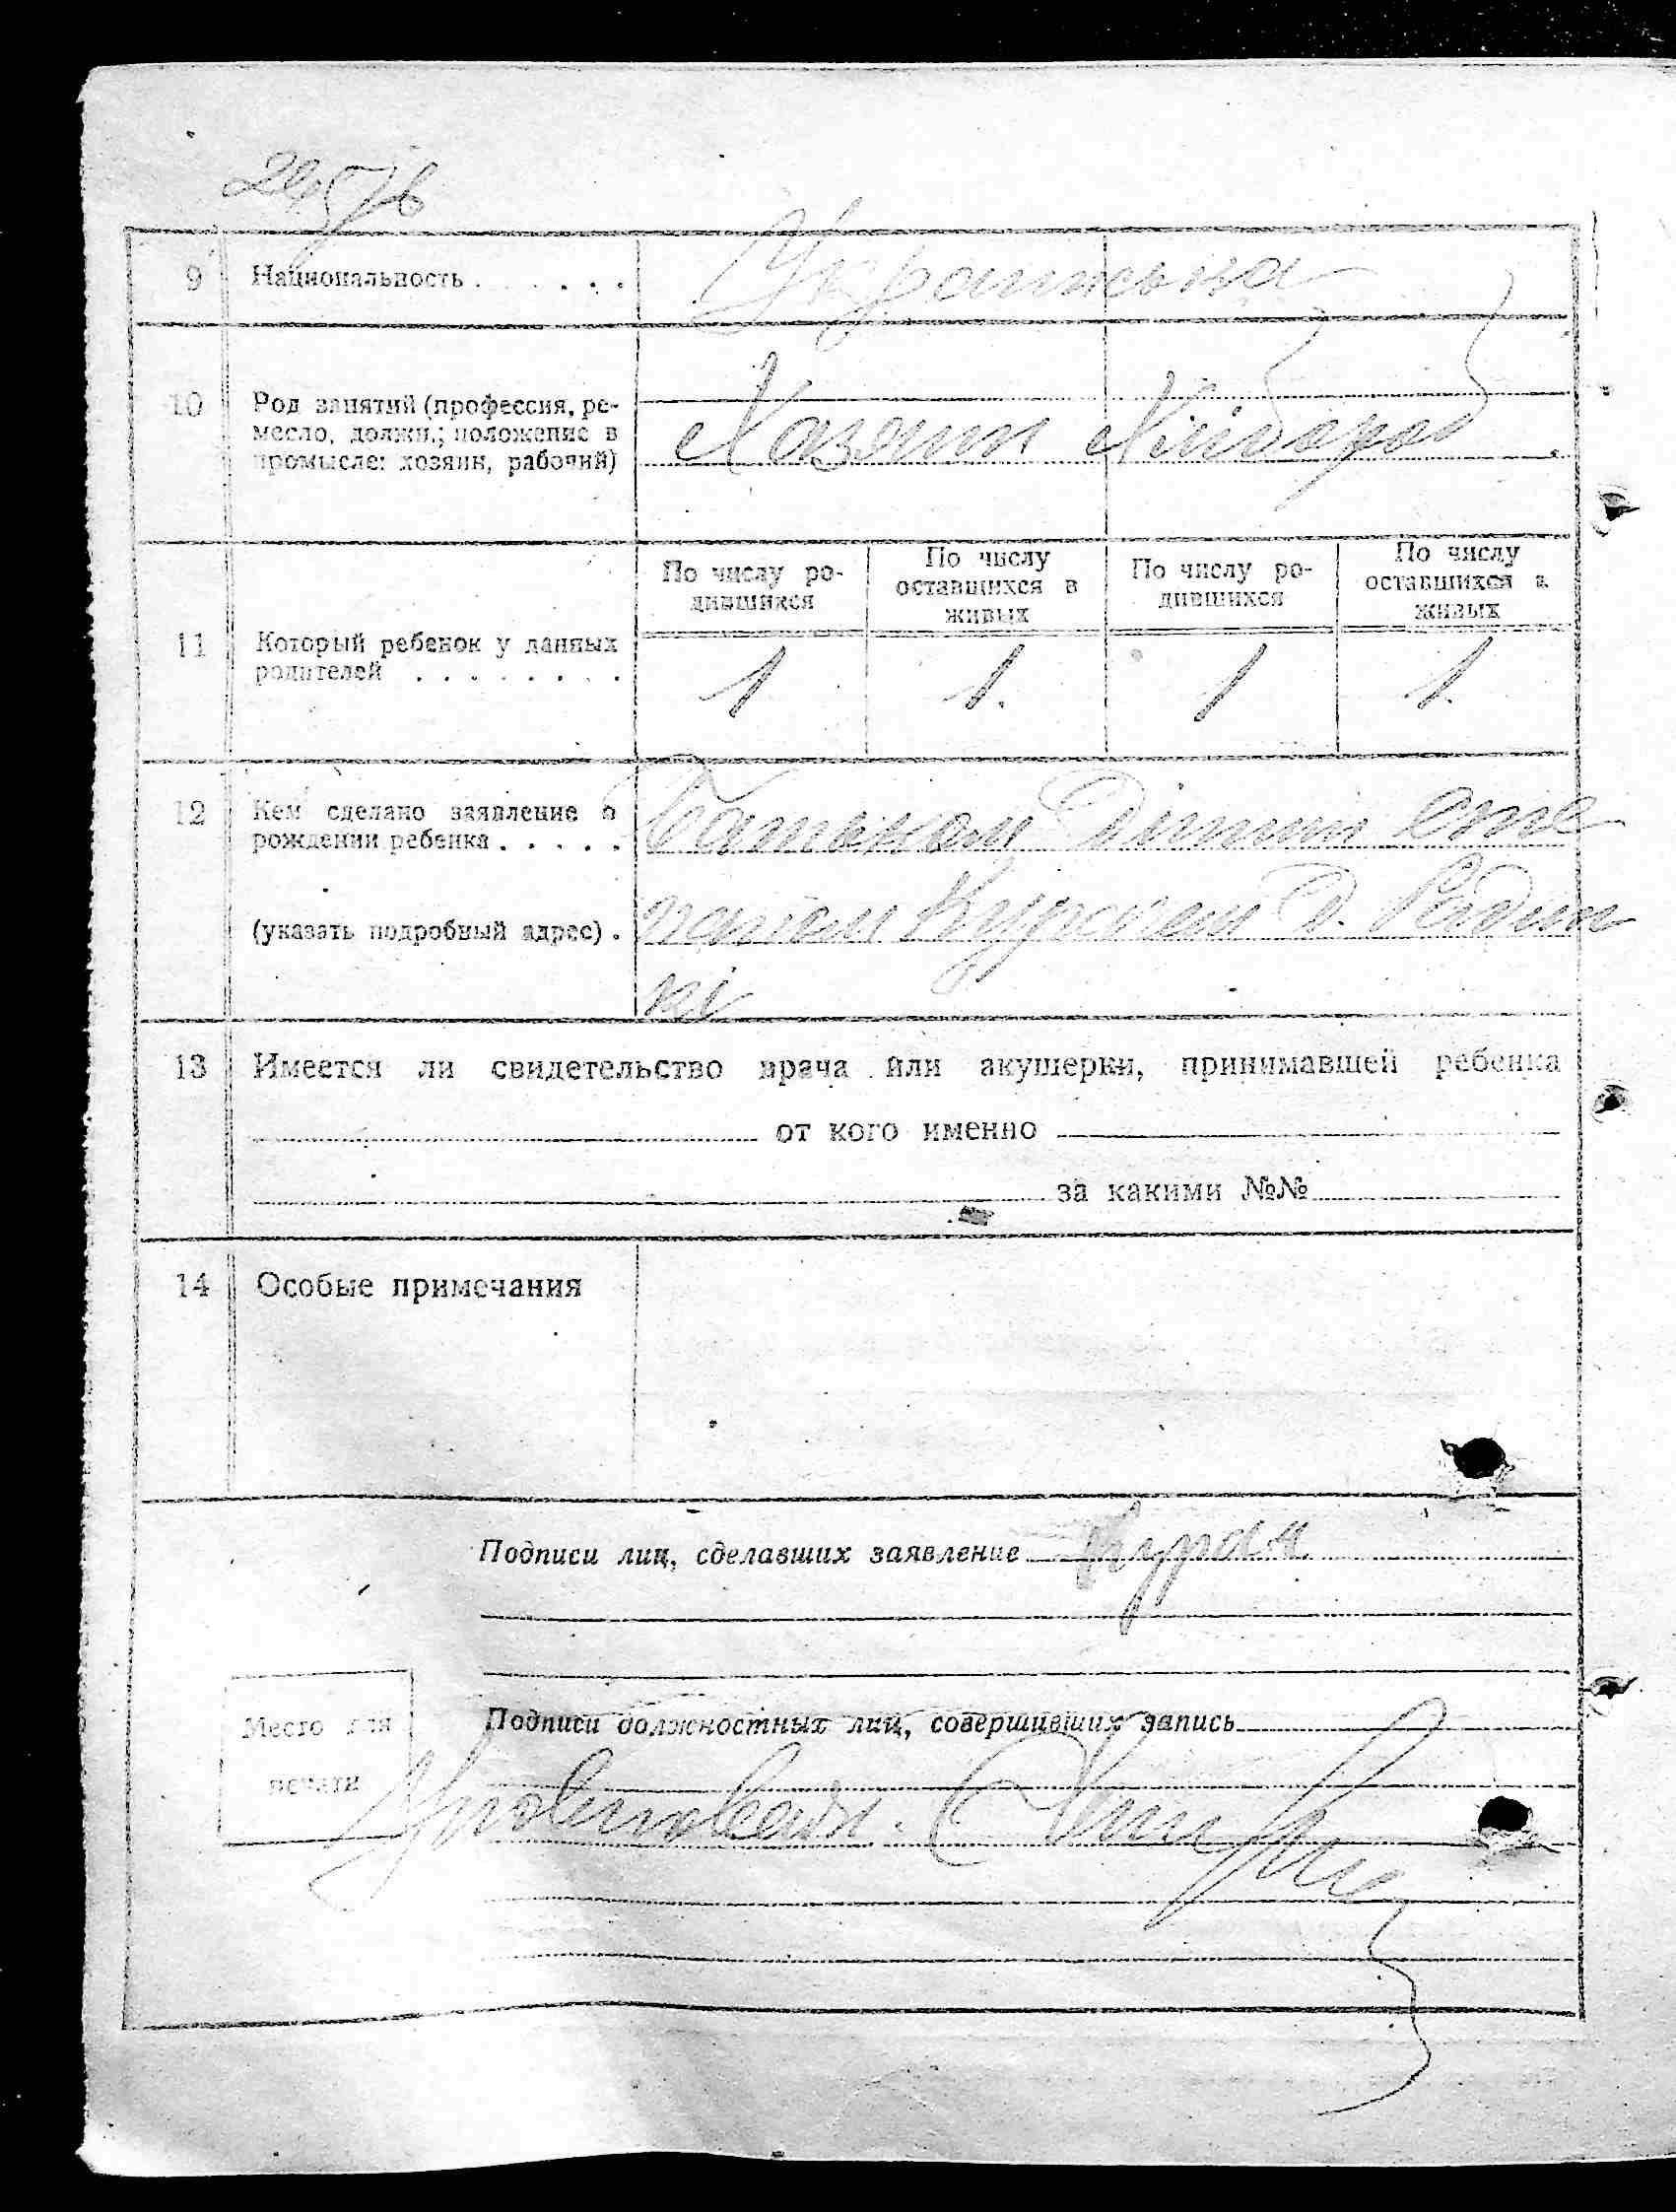 9 Национальность . . . . . . Українська
10 Род занятий (профессия, ре-
месло, должн.; положение в
промысле: хозяин, рабочий) Хазяин Хлібороб
По числу ро-
дившихся
По числу
оставшихся в
живых
По числу ро-
дившихся
По числу
оставшихся в
живых
11 Который ребенок у данных
родителей . . . . . . . . 1 1. 1 1.
12 Кем сделано заявление о
рождении ребенка . . . . . Батьком
(указать подробный адрес) .
кі
13 Имеется ли свидетельство врача или акушерки, принимавшей ребенка
от кого именно
за какими №№
14 Особые примечания
Подписи лиц, сделавших заявление
Место для
печати
Подписи должностных лиц, совершивших запись